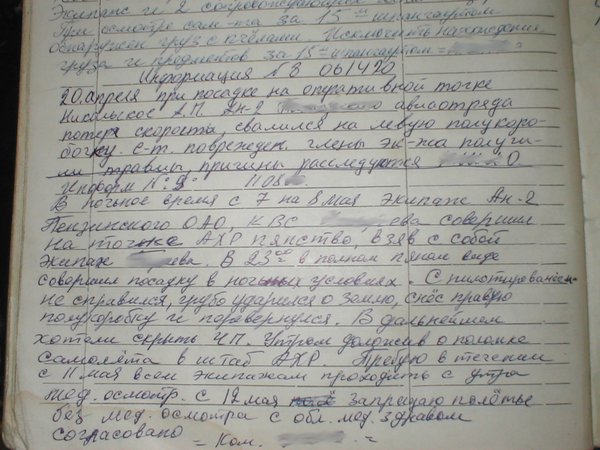 Экипаж и 2 сопровождающих
При осмотре сам-та за 15ым шпангоутом
обнаружен груз с пчёлами. Исключить нахождение
груза и предметов за 15ым шпангоутом =
Информация №3 061420
20. апреля при посадке на оперативной точке
Никольское А.П. Ан-2 авиаотряда
потеря скорости, свалился на левую полукоро-
бочку. с-т. поврежден. члены эк-жа получи-
ли травмы, причины расследуются О
информ №9: 1108
В ночное время с 7 на 8 мая экипаж Ан-2
Пензинского ОАО, КВС ева совершил
на точке АХР пянство, взяв с собой
экипаж ева. В 23 00 в полном пяном виде
совершил посадку в ночных условиях. С пилотированием
не справился, грубо ударился о землю, снёс правую
полукоробку и перевернулся. В дальнейшем
хотели скрыть ЧП. Утром доложив о поломке
самолёта в штаб АХР. Требую в течении
с 11 мая всем экипажам проходить с утра
мед. осмотр. с 12 мая запрещаю полёты
без мед. осмотра с обл. мед. здравом
согласовано
= Ком. =